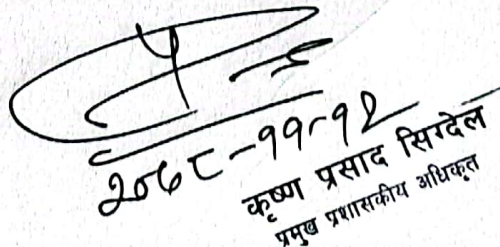 २०७८-११-१२
कृष्ण प्रसाद सिग्देल
प्रमुख प्रशासकीय अधिकृत